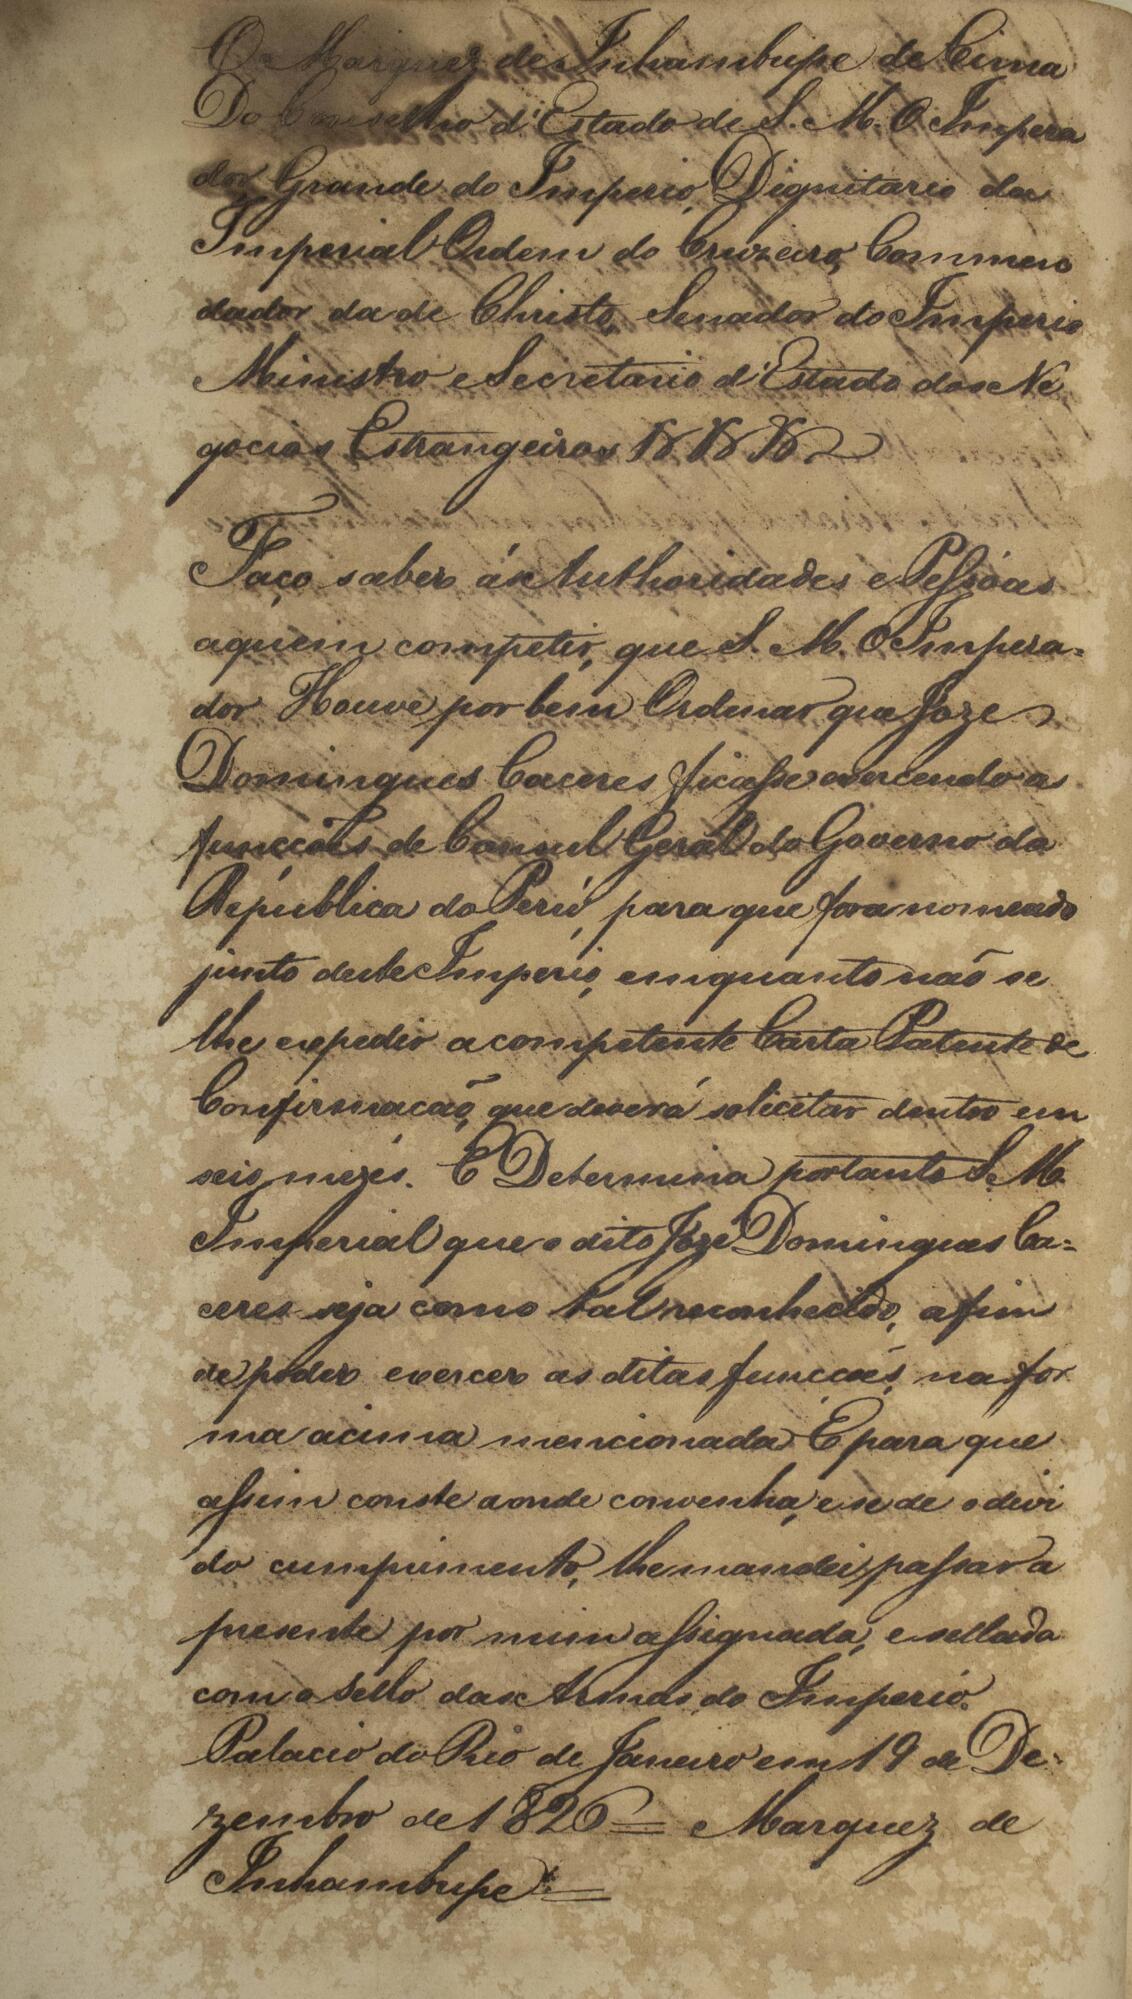 O Marquez de Inhambupe de Cima
Do Conselho d'Estado de S. M. O Impera
dor Grande do Imperio, Dignitario da
Imperial Ordem do Cruzeiro, Commen
dador da de Christo, Senador do Imperio
Ministro e Secretario d'Estado dos Ne
gocios Estrangeiros &c &c &c
Faço saber ás Authoridades e Pessôas
aquem competir, que S. M. O Impera-
dor Houve por bem Ordenar que Joze
Domingues Caceres ficasse exercendo as
funcções de Consul Geral do Governo da
Républica do Perú, para que fora nomeado
junto deste Império, emquanto não se
lhe expedir a competente Carta Patente de
Confirmação, que deverá solicitar dentro em
seis mezes. E Determina portanto S. M.
Imperial que o dito Jozé Domingues Ca-
ceres seja como tal reconhecido, afim
de poder exercer as ditas funcções, na for
ma acima mencionada. E para que
assim conste aonde convenha, e se dê o devi
do cumprimento, lhe mandei passar a
presente por mim assignada, e sellada
com o Sello das Armas do Imperio.
Palacio do Rio de Janeiro em 19 de De-
zembro de 1826 = Marquez de
Inhambupe. =